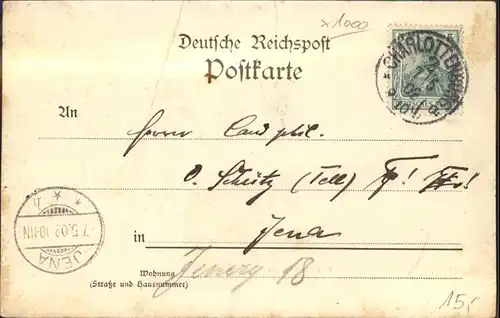 x 1000
Deutsche Reichspost
Postkarte
CHARLOTTENBURG
An
Herrn Cand. phil.
O. Schütz (Tell)
in Jena
* * h
7.5.02 10-11N
JENA
Wohnung
(Straße und Hausnummer)
15,-